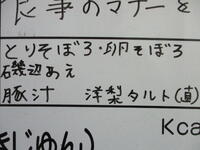 食事のマナーを
とりそぼろ・卵そぼろ
磯辺あえ
豚汁 洋梨タルト(直)
Kca
きじゅん)